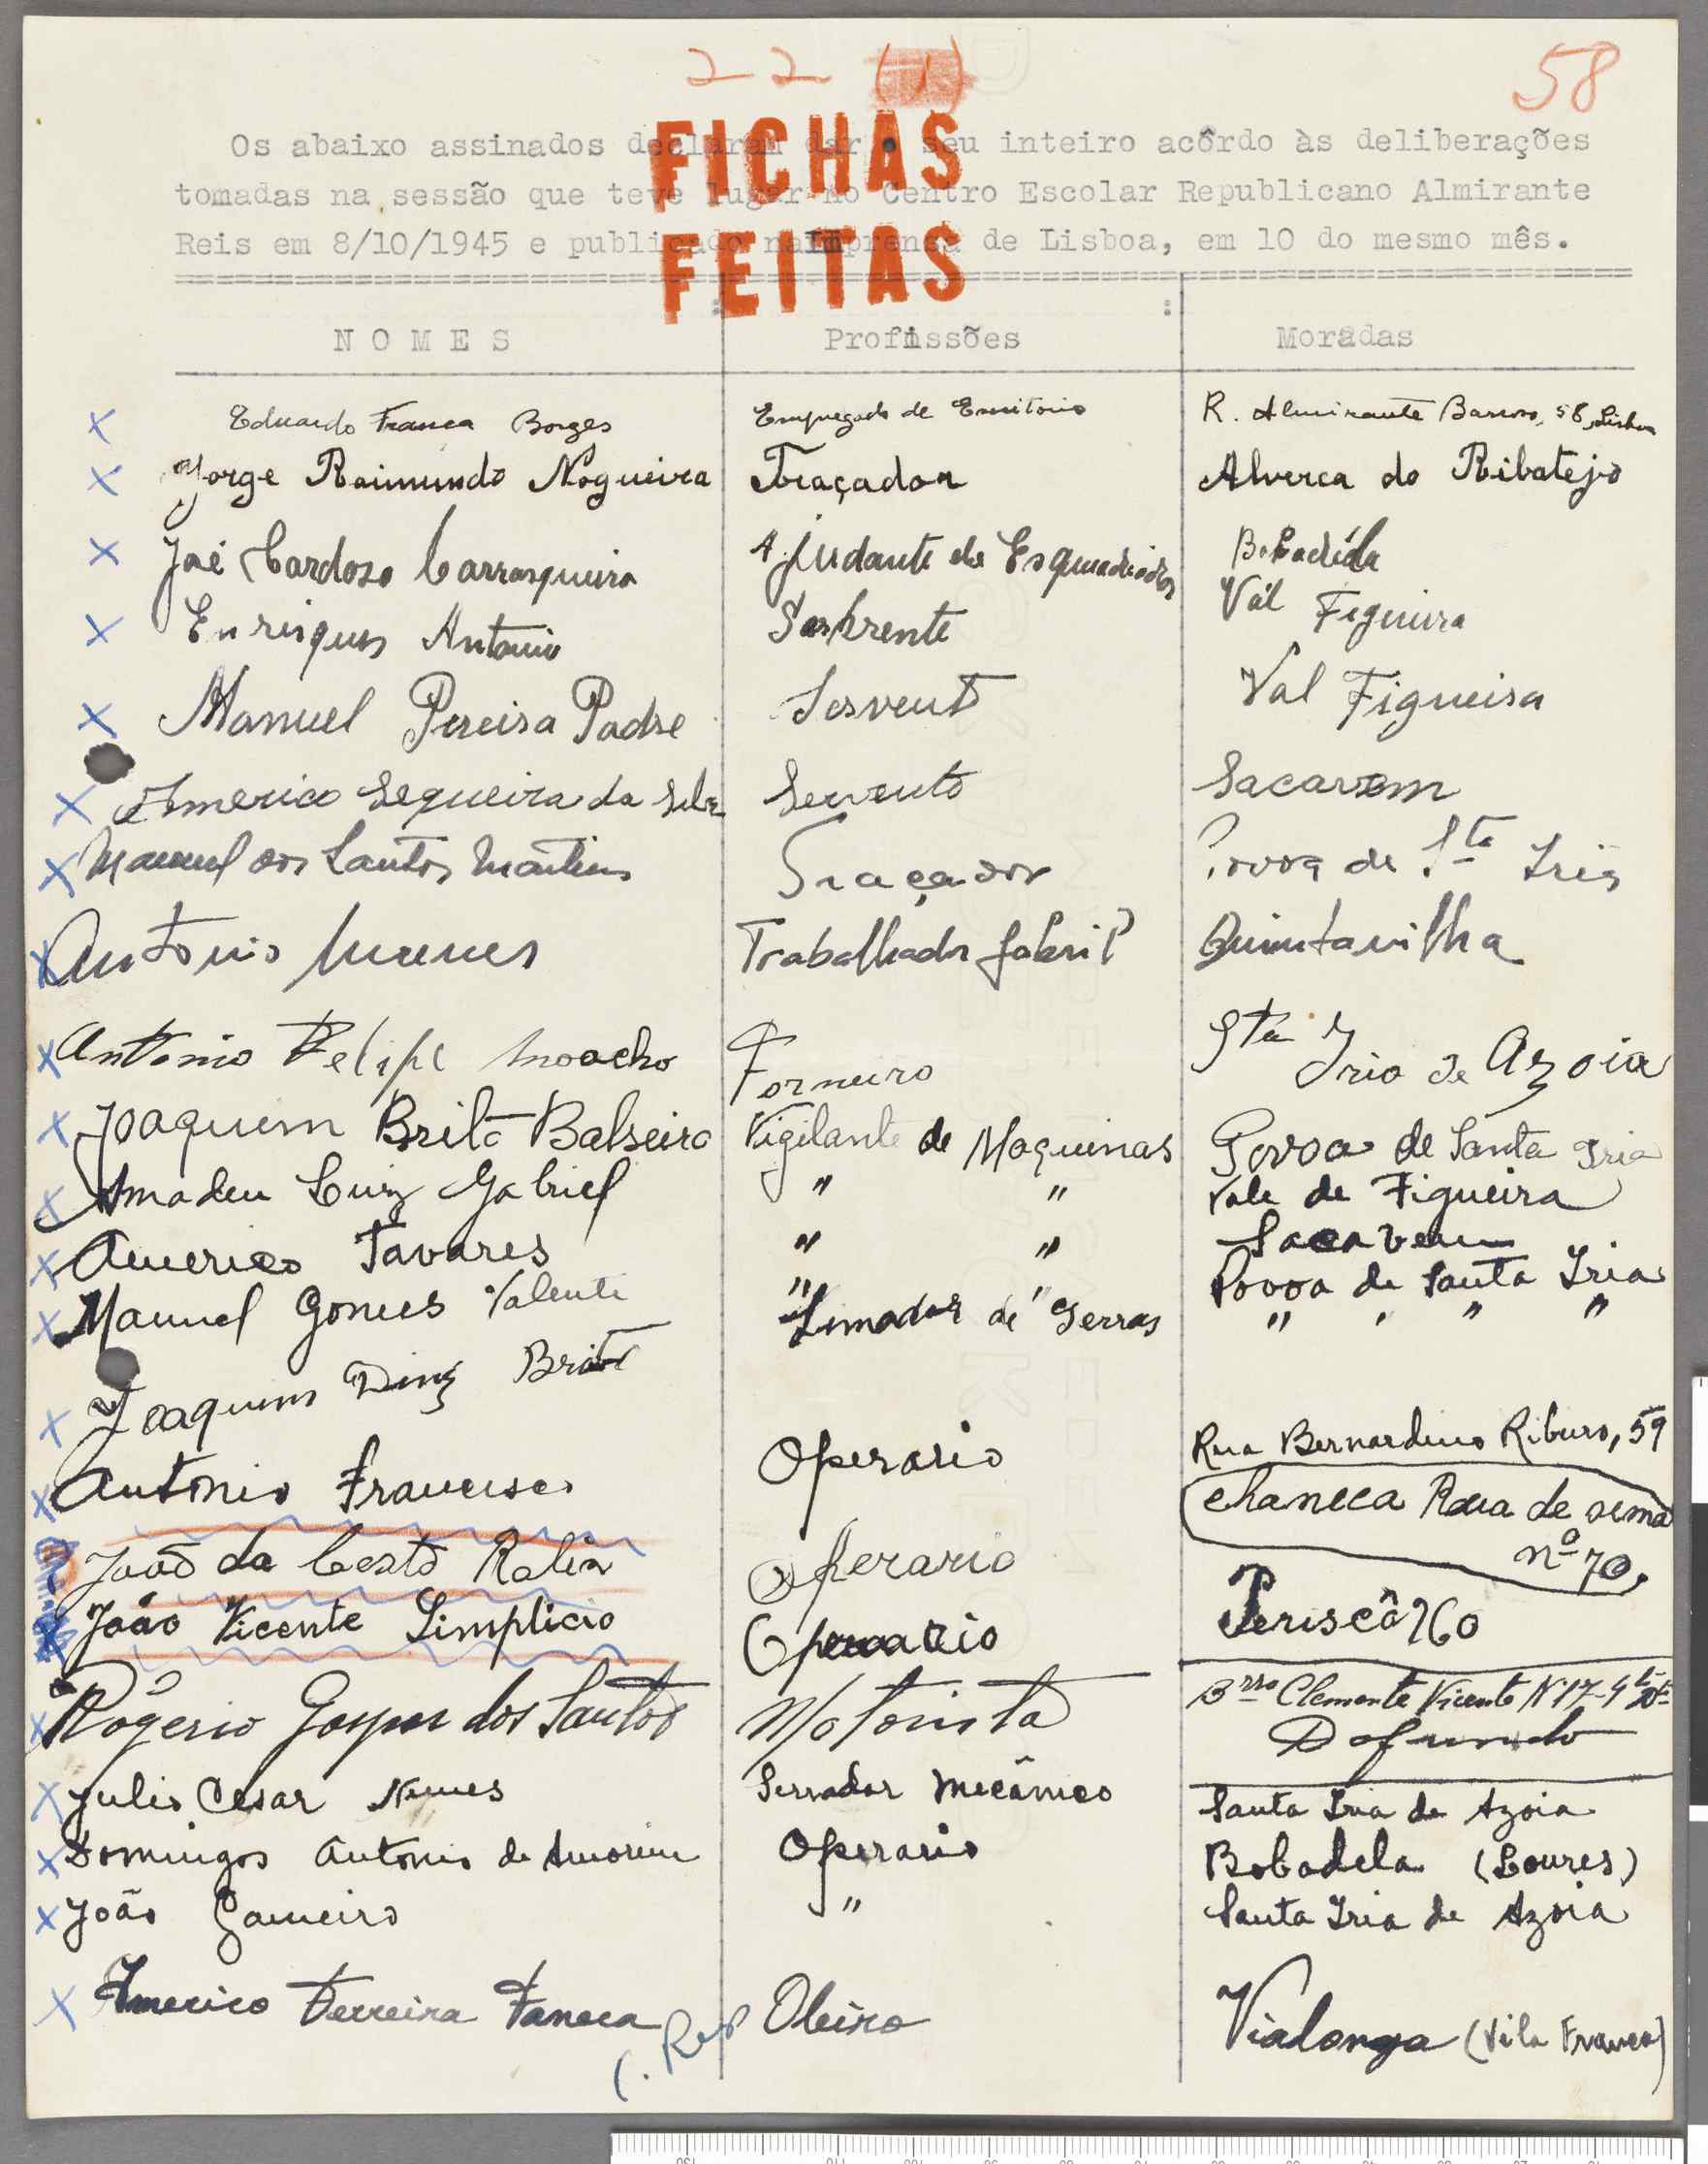 22 (1)
58
FICHAS
FEITAS
Os abaixo assinados declaram dar o seu inteiro acôrdo às deliberações
tomadas na sessão que teve lugar no Centro Escolar Republicano Almirante
Reis em 8/10/1945 e publicado naImprensa de Lisboa, em 10 do mesmo mês.
NOMES : Profissões : Moradas
Eduardo Franca Borges Empregado de Escritorio R. Almirante Barroso, 58, Lisboa
Jorge Raimundo Nogueira Traçador Alverca do Ribatejo
José Cardoso Carrasqueira Ajudante de Esquadriador Bobadéla
Enriques Antonio Serbrente Vál Figueira
Manuel Pereira Padre Servent Val Figueira
Americo Sequeira da Silva Servente Sacavem
Manuel dos Santos Martins Traçador Povoa de Sta Iria
Antonio Nunes Trabalhador fabril Quintavilha
Antonio Felipe Moacho Forneiro Sta Iria de Azoia
Joaquim Brito Balseiro Vigilante de Maquinas Povoa de Santa Iria
Amadeu Luiz Gabriel " " Vale de Figueira
Americo Tavares " " Sacavem
Manuel Gomes Valente " " Povoa de Santa Iria
Joaquim Diniz Brito Limador de Serras " " " "
Antonio Francisco Operario Rua Bernardino Riburo, 59
João da Costa Ralia Operario Charneca Rua de sema
nº 70,
João Vicente Simplicio Operario Periscôxo
Rógerio Gaspar dos Santos Motorista Brro Clemente Vicente Nº 17-4º Dto
Dafundo
Julio Cesar Nunes Serrador Mecânico Santa Iria de Azoia
Domingos Antonio de Amorim Operario Bobadela (Loures)
João Gameiro " Santa Iria de Azoia
Americo Ferreira Faneca Oleiro Vialonga (Vila Franca)
(. Rep